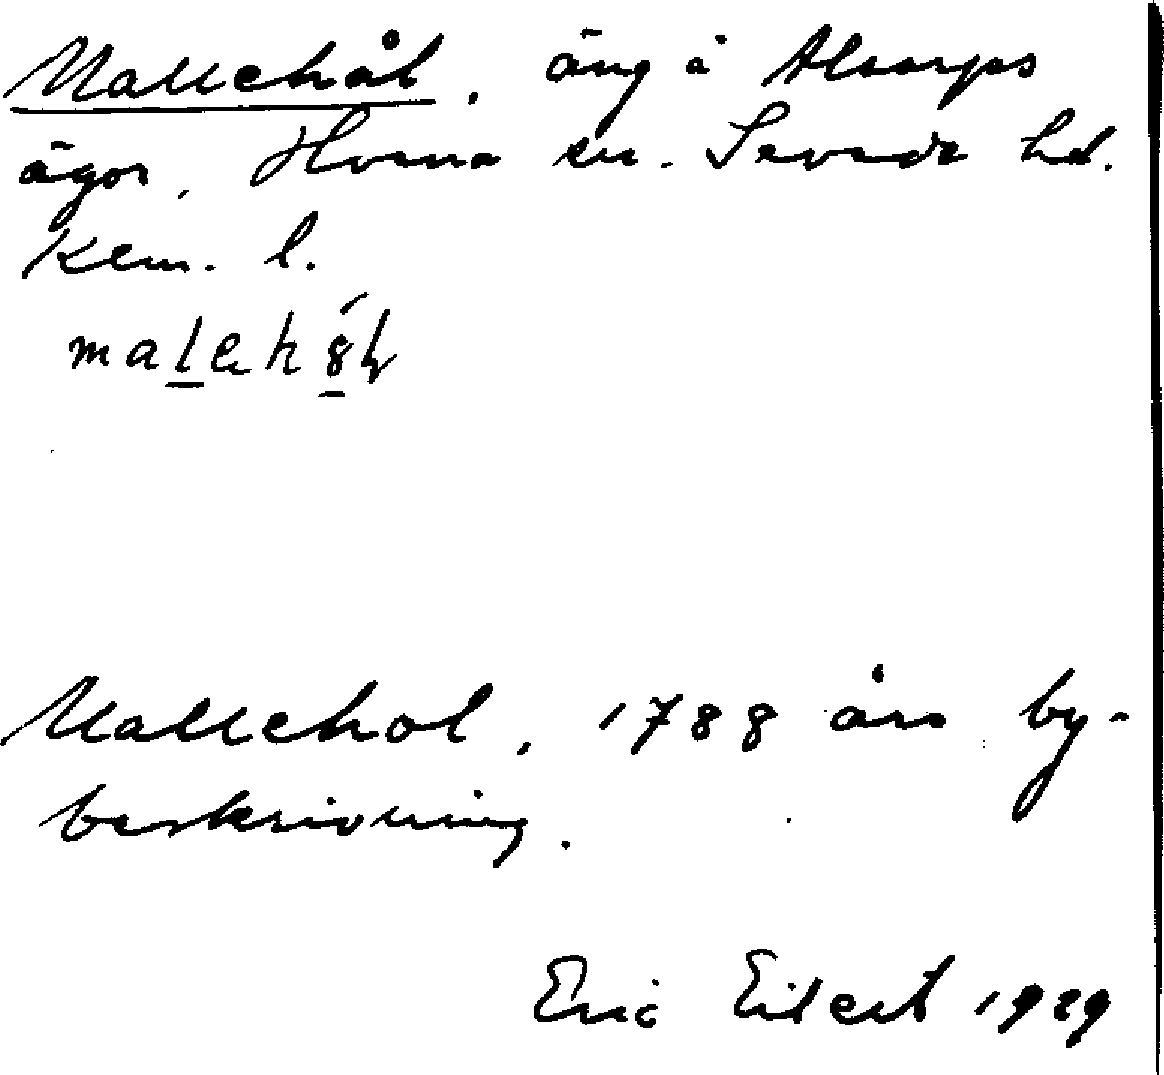 Mallehål, äng å Alsarps
ägor, Hvena sn. Sevede hd.
Kalm. l.
Mallehol, 1788 års by-
beskrivning.
Eric Eilert 1929